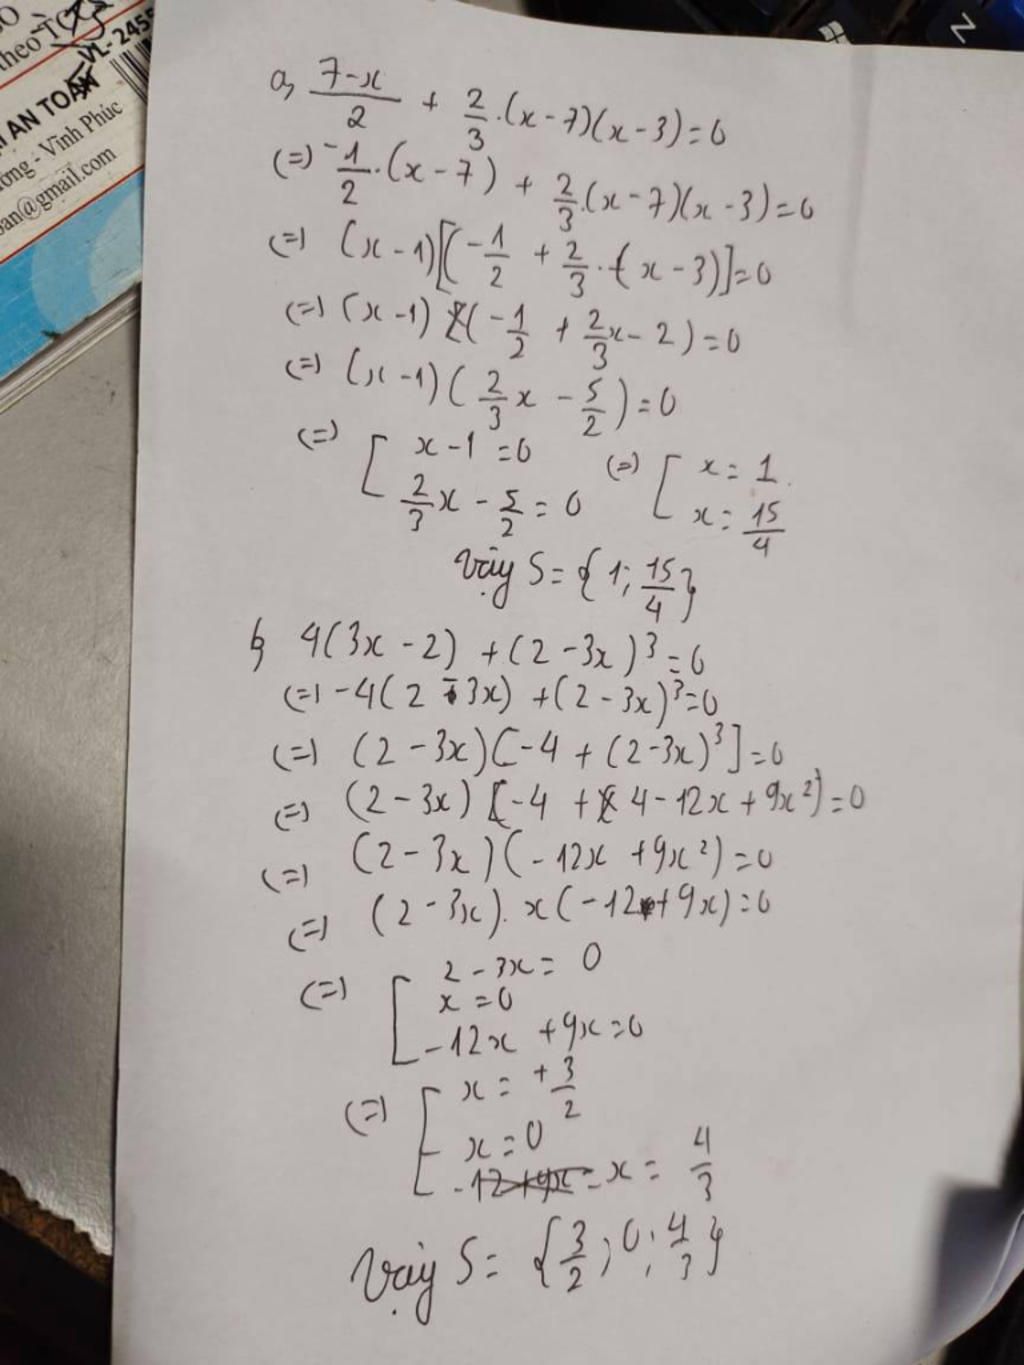 theo TC
VL-245
AN TOÀN
ơng - Vĩnh Phúc
oan@gmail.com
Z
a, \frac{7-x}{2} + \frac{2}{3}.(x-7)(x-3)=0
(=) -\frac{1}{2}.(x-7) + \frac{2}{3}.(x-7)(x-3)=0
(=) (x-1)[(-\frac{1}{2} + \frac{2}{3}.(x-3)]=0
(=) (x-1)(-\frac{1}{2} + \frac{2}{3}x-2)=0
(=) (x-1)(\frac{2}{3}x - \frac{5}{2})=0
(=) [ x-1=0 (=) [ x=1
\frac{2}{3}x - \frac{5}{2} = 0 x = \frac{15}{4}
Vậy S={1; \frac{15}{4}}
b, 4(3x-2) + (2-3x)^3=0
(=) -4(2-3x) + (2-3x)^3=0
(=) (2-3x)[-4 + (2-3x)^3]=0
(=) (2-3x)[-4 + 4-12x+9x^2)=0
(=) (2-3x)(-12x+9x^2)=0
(=) (2-3x).x(-12+9x)=0
(=) [ 2-3x=0
x=0
-12x+9x=0
(=) [ x = +\frac{3}{2}
x=0
x = \frac{4}{3}
Vậy S= {\frac{3}{2}; 0; \frac{4}{3}}